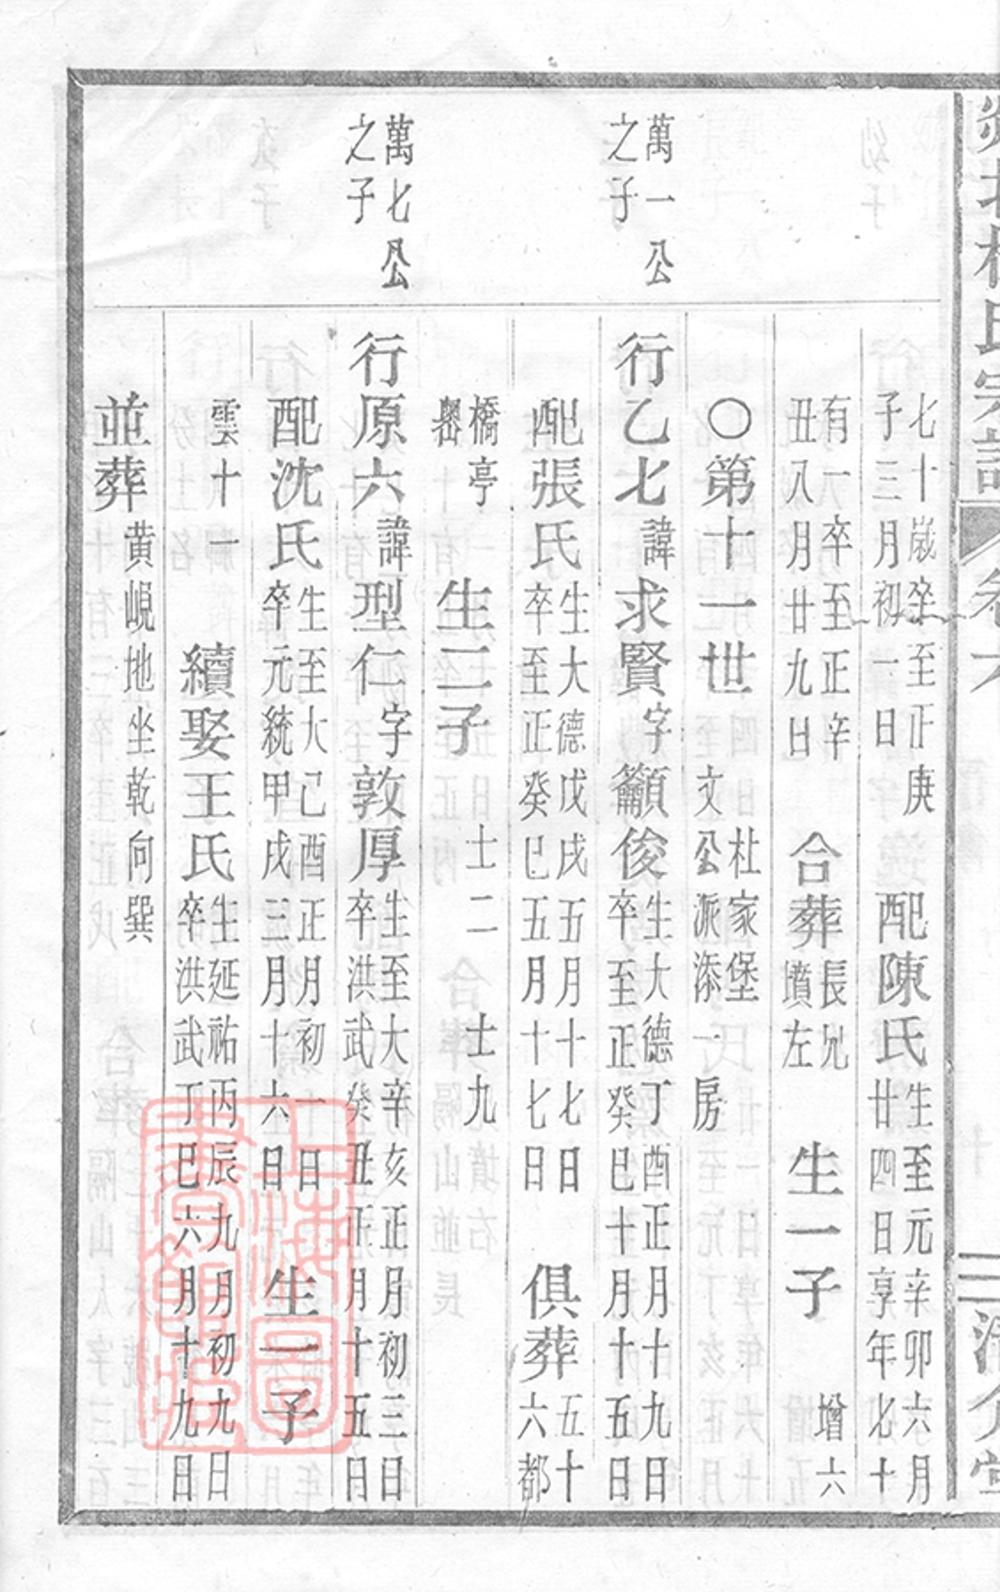 氏宗譜
卷六
七十歲卒至正庚
子三月初一日
配陳氏
生至元辛卯六月
廿四日享年七十
有一卒至正辛
丑八月廿九日
合葬
長兄
墳左
生一子
增六
○第十一世
杜家堡
文公派添一房
萬一公
之子
行乙七
諱
求賢
字
籲俊
生大德丁酉正月十九日
卒至正癸巳十月十五日
配張氏
生大德戊戌五月十七日
卒至正癸巳五月十七日
俱葬
五十
六都
橋亭
嶴
生二子
士二
士九
萬七公
之子
行原六
諱
型仁
字
敦厚
生至大辛亥正月初三日
卒洪武癸丑正月十五日
配沈氏
生至大己酉正月初一日
卒元統甲戌三月十六日
生一子
雲十一
續娶王氏
生延祐丙辰九月初九日
卒洪武丁巳六月十九日
並葬
黃峴地坐乾向巽
上海圖
書館藏